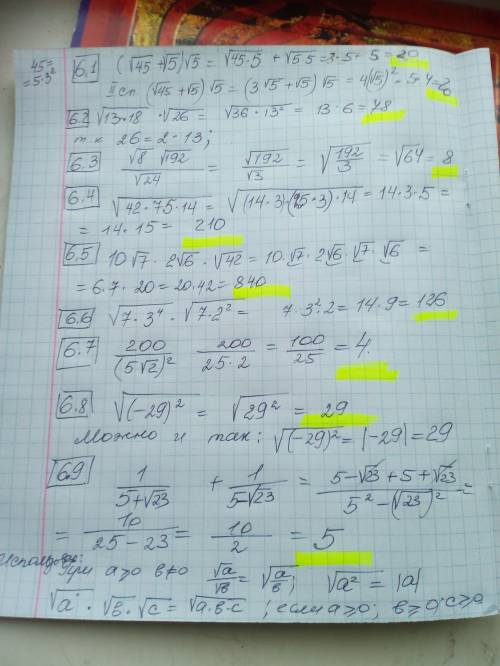 45=
=5·3²
6.1 (√45 + √5)√5 = √45·5 + √5·5 = 3·5+ 5 = 20
II сп. (√45 + √5)√5 = (3√5 + √5)√5 = 4(√5)² = 5·4 = 20
6.2 √13·18 · √26 = √36·13² = 13·6 = 78
т.к 26 = 2·13;
6.3 √8 √192 / √24 = √192 / √3 = √(192/3) = √64 = 8
6.4 √42·75·14 = √(14·3)·(25·3)·14 = 14·3·5 =
= 14·15 = 210
6.5 10√7 · 2√6 · √42 = 10·√7·2√6·√7·√6 =
= 6·7·20 = 20·42 = 840
6.6 √7·3⁴ · √7·2² = 7·3²·2 = 14·9 = 126
6.7 200 / (5√2)² 200 / 25·2 = 100 / 25 = 4.
6.8 √(-29)² = √29² = 29
Можно и так: √(-29)² = |-29| = 29
6.9 1 / 5+√23 + 1 / 5-√23 = 5-√23 + 5 + √23 / 5² - (√23)² =
= 10 / 25-23 = 10 / 2 = 5
при a≥0 в≠0 √a / √в = √(a/в); √a² = |a|
√a · √в · √c = √a·в·c ; если a≥0; в≥0; c≥0